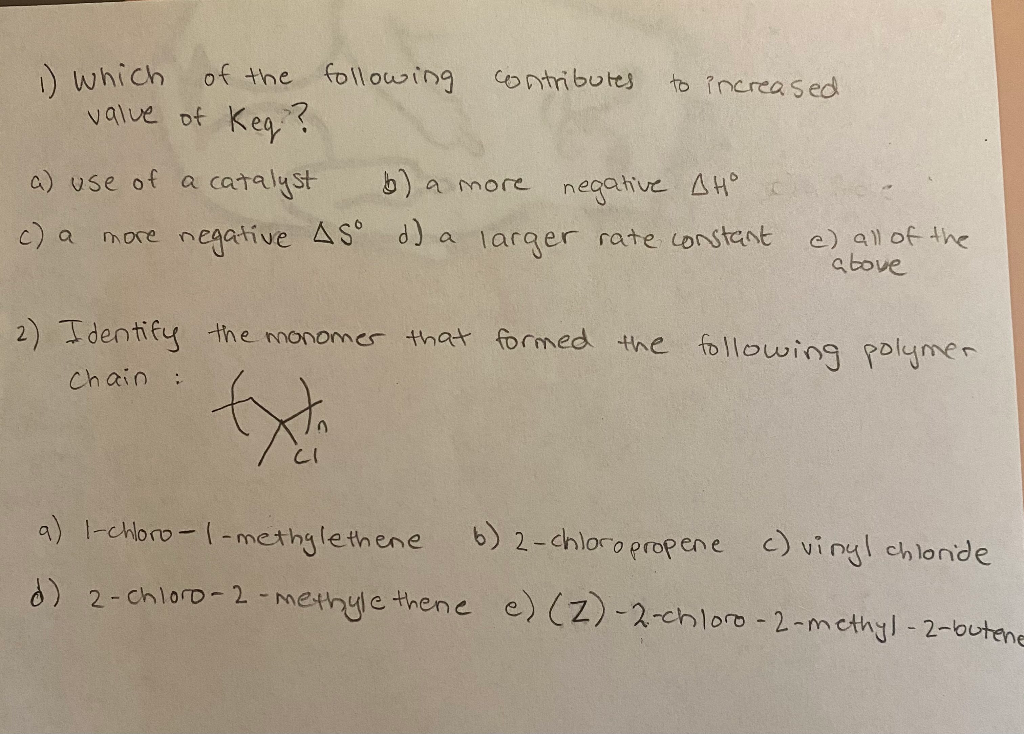 1) Which of the following contributes to increased
value of Keq?
a) use of a catalyst b) a more negative ΔH°
c) a more negative ΔS° d) a larger rate constant e) all of the
above
2) Identify the monomer that formed the following polymer
chain :
n
Cl
a) 1-chloro-1-methylethene b) 2-chloropropene c) vinyl chloride
d) 2-chloro-2-methylethene e) (Z)-2-chloro-2-methyl-2-butene